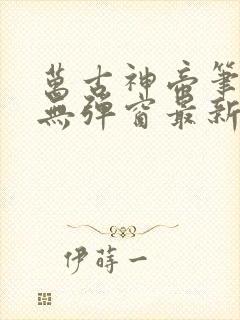 萬古神帝筆
無彈窗最新
伊蒔一